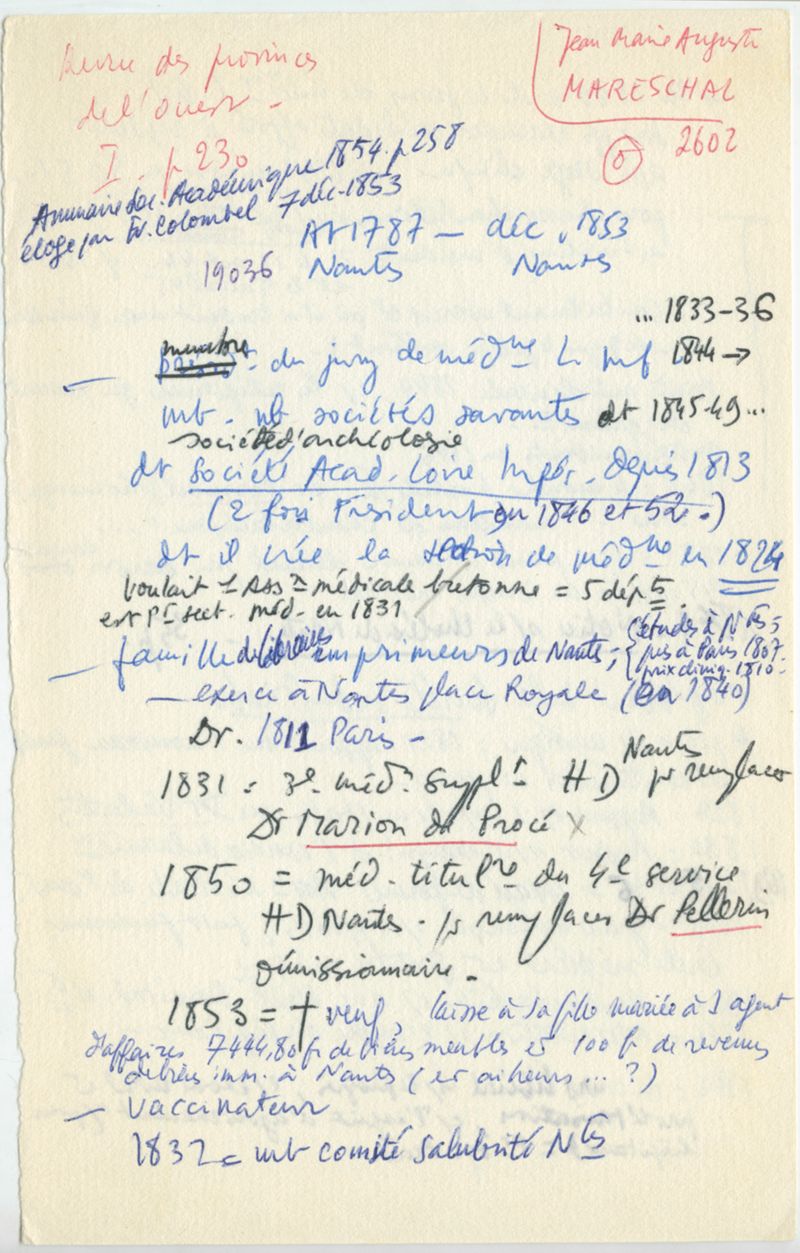 Revue des provinces
de l'ouest -
I - p 230
Jean Marie Auguste
MARESCHAL
2602
Annuaire Soc. Académique 1854. p 258
éloge par Ev. Colombel 7 déc. 1853
1787 - déc. 1853
19036 Nantes Nantes
... 1833-36
membre
du jury de méd^ne L. Inf 1844 →
mb - nb sociétés savantes dt 1845-49...
société d'archéologie
dt Société Acad. Loire Infér. depuis 1813
(2 fois Président en 1846 et 52.)
dt il crée la section de méd^ne en 1824
voulait 1 Ass^n médicale bretonne = 5 dép^ts
est P^r sect. méd. en 1831
- famille de libraires imprimeurs de Nantes,
(études à N^tes
puis à Paris 1807.
prix cliniq. 1810.
- exerce à Nantes place Royale (en 1840)
Dr. 1811 Paris -
1831 = 3e méd^n suppl^t HD Nantes pr remplacer
Dr Marion de Procé x
1850 = méd. titul^re du 4e service
HD Nantes. pr remplacer Dr Pellerin
démissionnaire -
1853 = † veuf, laisse à sa fille mariée à 1 agent
d'affaires 7444,80 fr de biens meubles et 100 fr de revenus
de biens imm. à Nantes (et ailleurs ... ?)
- vaccinateur
1832 = mb comité salubrité N^tes